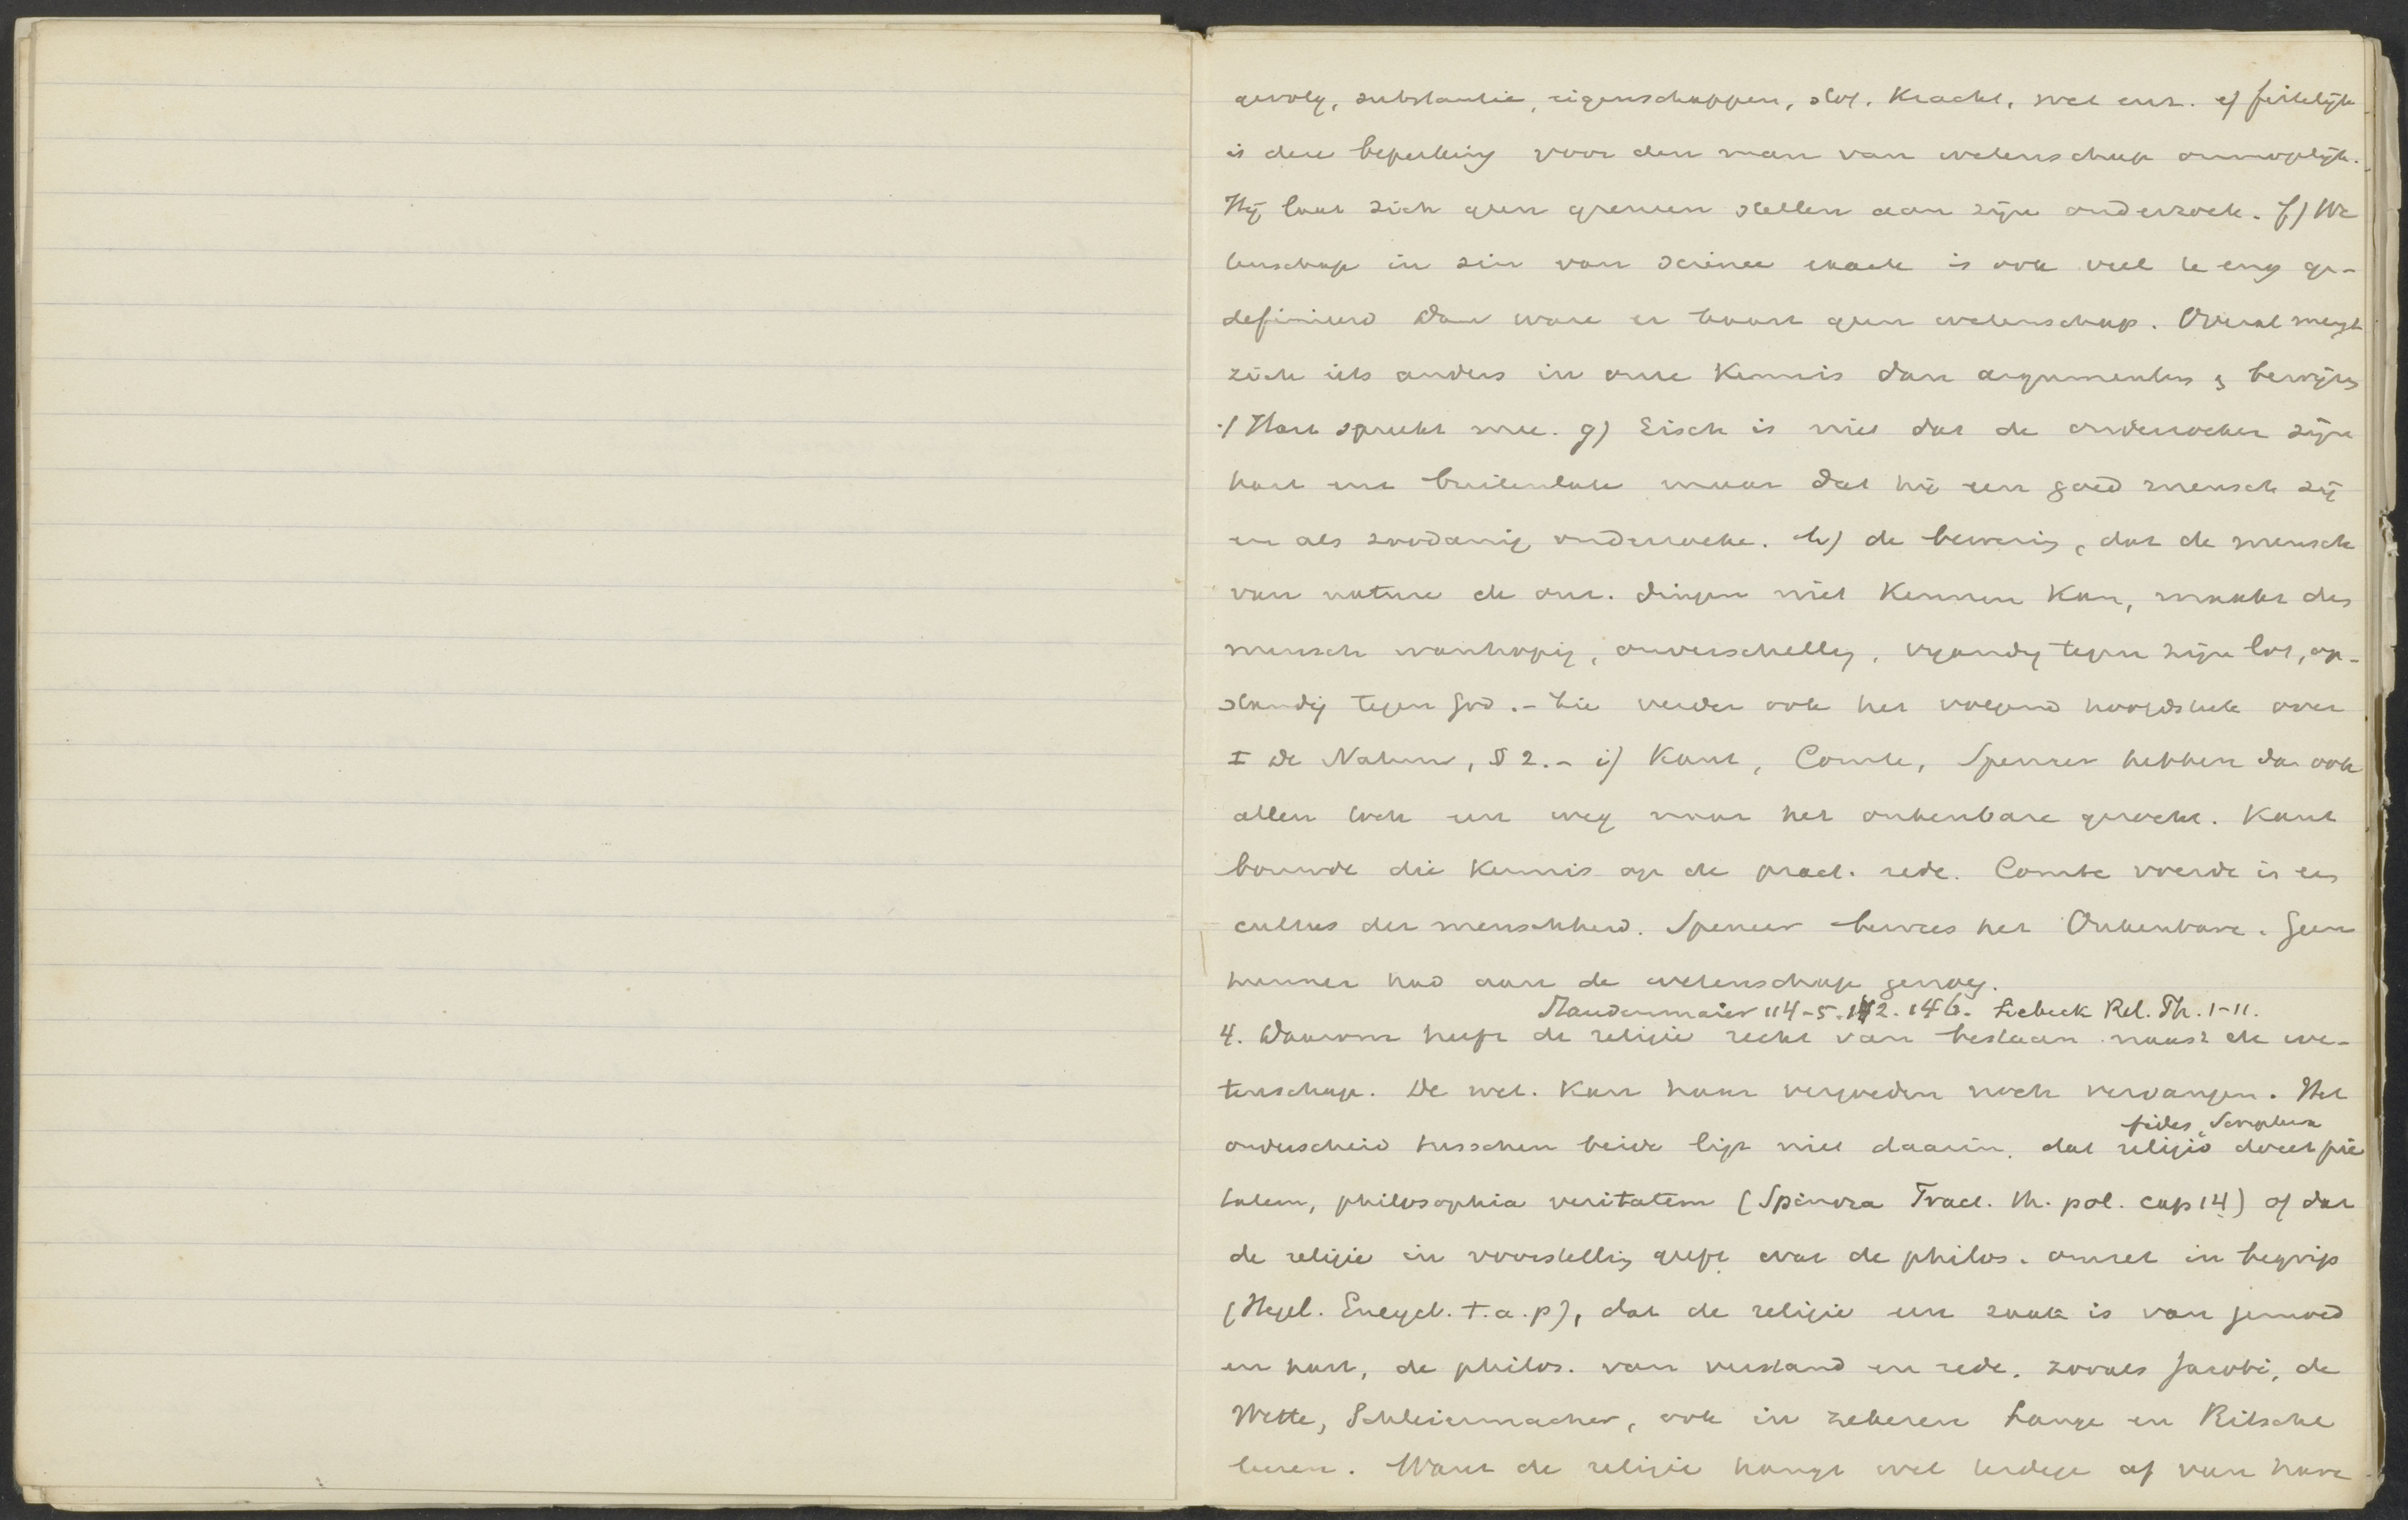 gevolg, substantie, eigenschappen, stof, kracht, wet enz. e) feitelijk
is deze beperking voor den man van wetenschap onmogelijk.
Hij laat zich geen grenzen stellen aan zijn onderzoek. f) We
tenschap in zin van science exacte is ook veel te eng ge-
definieerd Dan ware er haast geen wetenschap. Overal mengt
zich iets anders in onze kennis dan argumenten & bewijzen
Hart spreekt mee. g) Eisch is niet dat de onderzoeker zijn
hart enz buitenlate maar dat hij een goed mensch zij
en als zoodanig onderzoeke. h) de bewering, dat de mensch
van nature de onz. dingen niet kennen kan, maakt den
mensch wanhopig, onverschillig, vijandig tegen zijn lot, op-
standig tegen God. - Zie verder ook het volgend hoofdstuk over
I De Natuur, § 2. - i) Kant, Comte, Spencer hebben dan ook
allen toch een weg naar het onkenbare gezocht. Kant
bouwde die kennis op de pract. rede. Comte voerde in een
cultus der menschheid. Spencer bewees het Onkenbare. Geen
hunner had aan de wetenschap genoeg.
Staudenmaier 114-5. 142. 146. Siebeck Rel. Ph. 1-11.
4. Daarom heeft de religie recht van bestaan naast de we-
tenschap. De wet. kan haar vergoeden noch vervangen. Het
fides, Scriptura
onderscheid tusschen beide ligt niet daarin, dat religio docet pie
tatem, philosophia veritatem (Spinoza Tract. th. pol. cap 14) of dat
de religie in voorstelling geeft wat de philos. omzet in begrip
(Hegel. Encycl. t.a.p), dat de religie een zaak is van gemoed
en hart, de philos. van verstand en rede, zooals Jacobi, de
Wette, Schleiermacher, ook in zekeren Lange en Ritschl
leeren. Want de religie hangt wel terdege af van hare